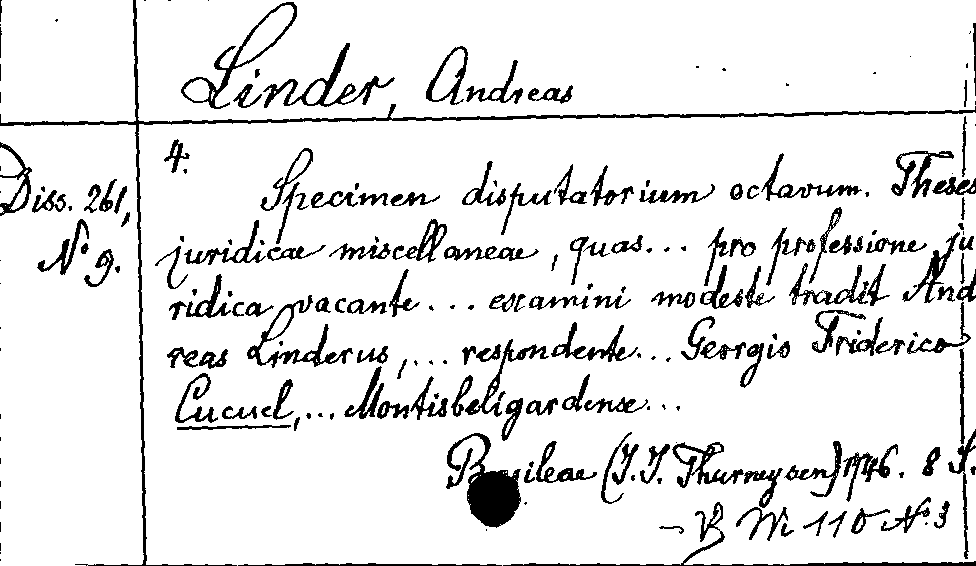 Linder, Andreas
4.
Diss. 261,
No 9.
Specimen disputatorium octavum. Theses
juridicae miscellaneae, quas... pro professione ju
ridica vacante... examini modeste tradit And
reas Linderus,... respondente... Georgio Friderico
Cucuel,... Montisbeligardense...
Basileae (J.J. Thurneysen) 1746. 8 S.
110 No 3